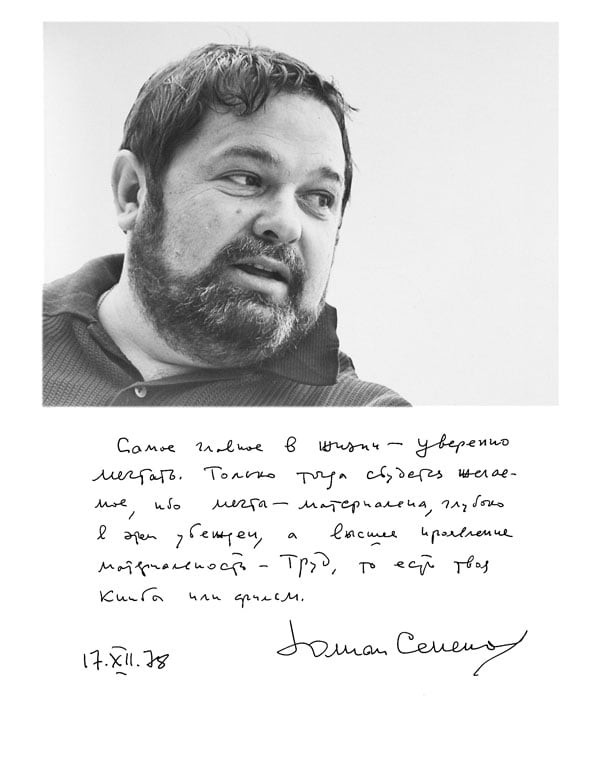 Самое главное в жизни — уверенно
мечтать. Только тогда сбудется желае-
мое, ибо мечта — материальна, глубоко
в этом убежден, а высшее проявление
материальности — Труд, то есть твоя
книга или фильм.
17.XII.78
Юлиан Семенов